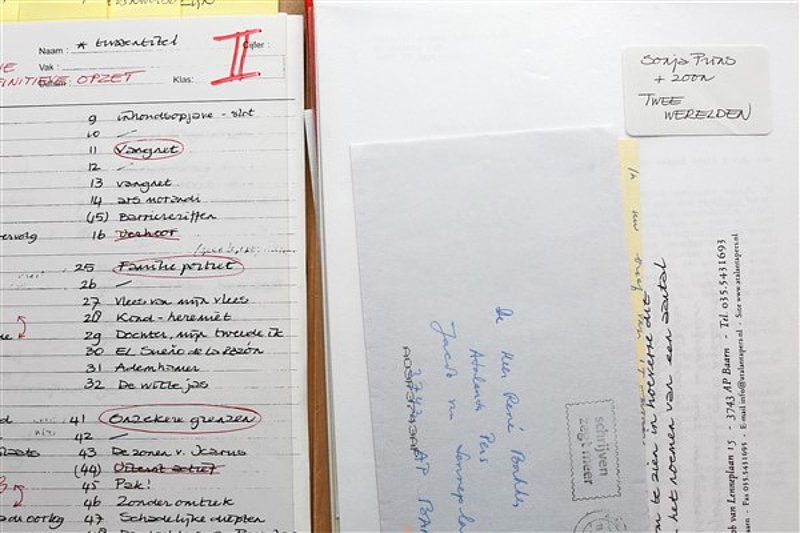 Naam : * tussentitel
II
Cijfer :
Vak :
DEFINITIEVE OPZET
Klas:
9 inhoudsopgave - slot
10 -
11 Vangnet
12 -
13 vangnet
14 ars morandi
(15) Barrièreriffen
16 Verhoor
25 Familieportret
26 -
27 Vlees van mijn vlees
28 Kond-heremiet
29 Dochter, mijn tweede ik
30 El Sueño de la Razón
31 Ademhamer
32 De witte jas
41 Onzekere grenzen
42 -
43 De zonen v. Icarus
(44)
45 Pak!
46 Zonder omtrek
47 Schadelijke diepten
Sonja Prins
+ zoon
TWEE
WERELDEN
De Heer René Bakker
Atalanta Pers
Jacob van Lennepla
3743 AP BAA
schrijven
zegt meer
om te zien in hoeverre dit
het noemen van een aantal
ob van Lenneplaan 15 - 3743 AP Baarn - Tel 035.5431693
Fax 035.5431691 - E-mail info@atalantapers.nl - Site www.atalantapers.nl